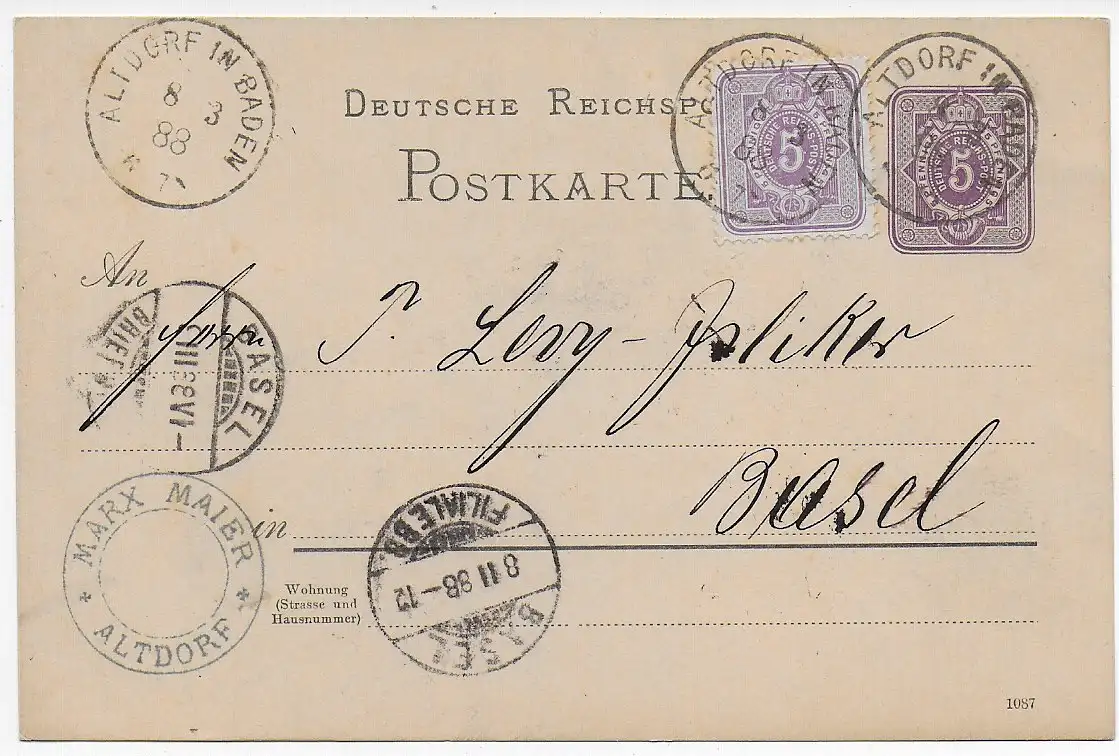 ALTDORF IN BADEN
8 3
88
DEUTSCHE REICHSPO
POSTKARTE.
ALTDORF IN BADEN
5 PFENNIG
DEUTSCHE REICHS-POST
5
ALTDORF IN BAD
5 PFENNIG
DEUTSCHE REICHS-POST
5
An
Herrn P. Levy-Isliker
BASEL
BRIEF
III 88 VI -
in Basel
MARX MAIER
ALTDORF
FILIALE BB.
8 II 88 - 12
BASEL
Wohnung
(Strasse und
Hausnummer)
1087